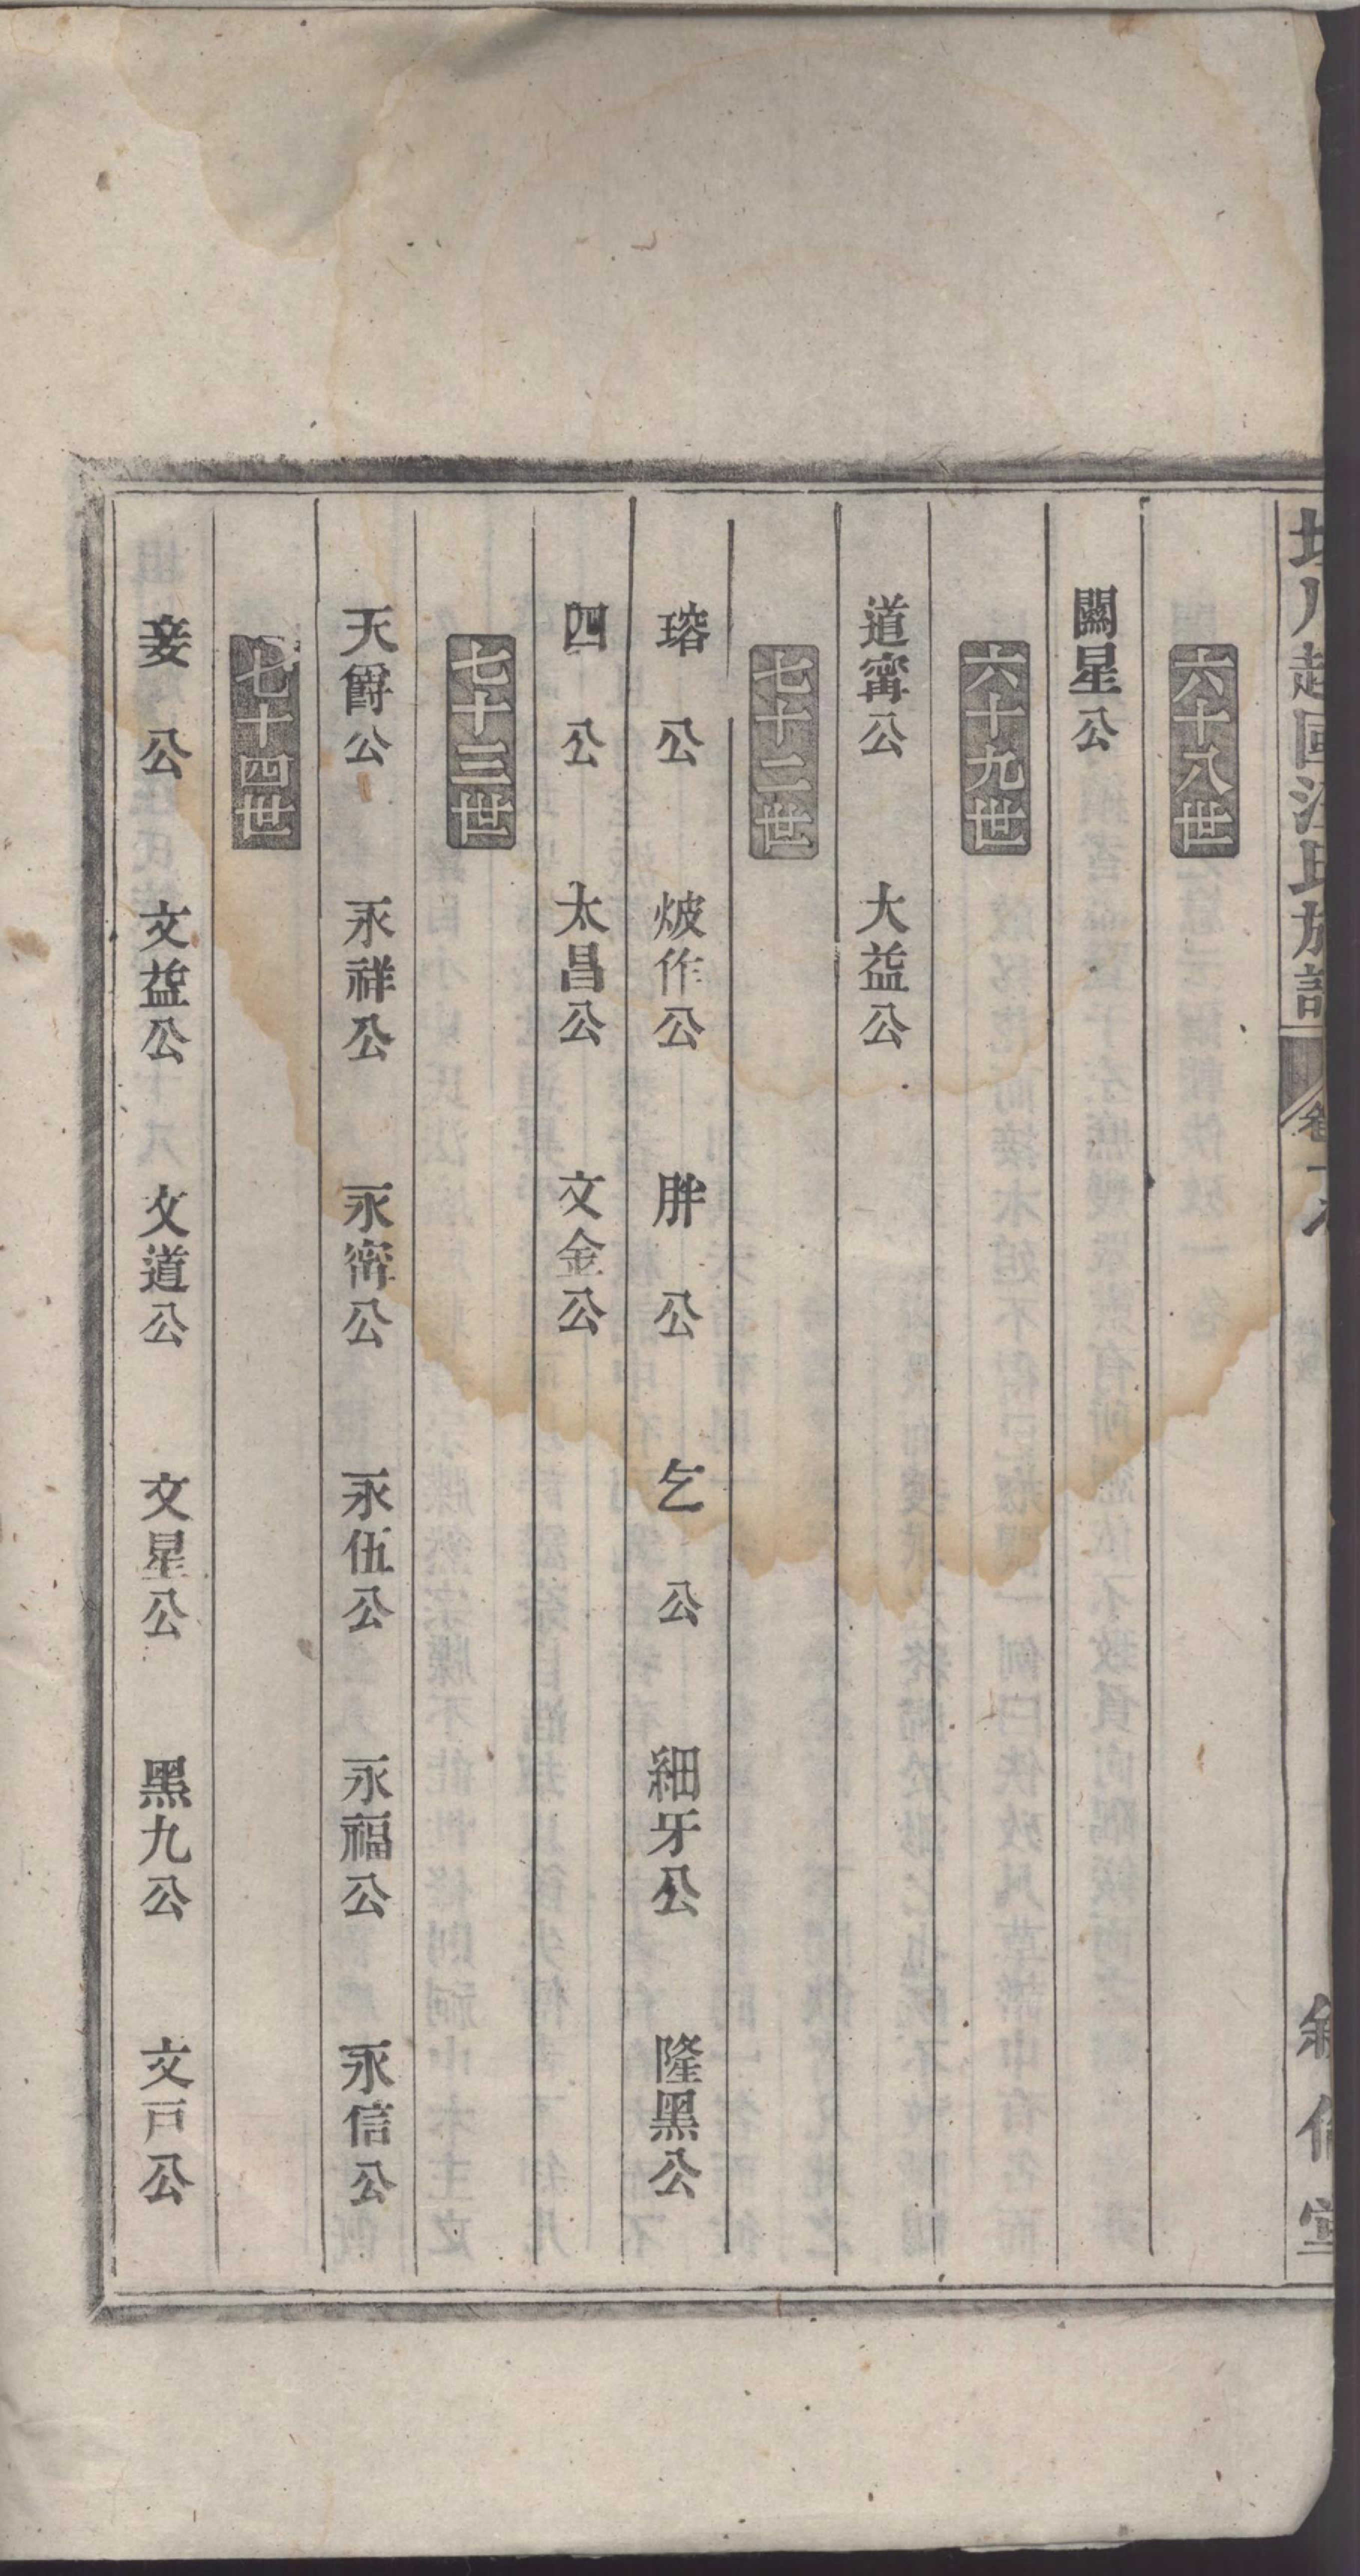 六十八世
關星公
六十九世
道甯公 大益公
七十二世
瑢公 𤇢作公 胖公 乞公 細牙公 隆黑公
四公 太昌公 文金公
七十三世
天爵公 永祥公 永甯公 永伍公 永福公 永信公
七十四世
公 文益公 文道公 文星公 黑九公 文戸公